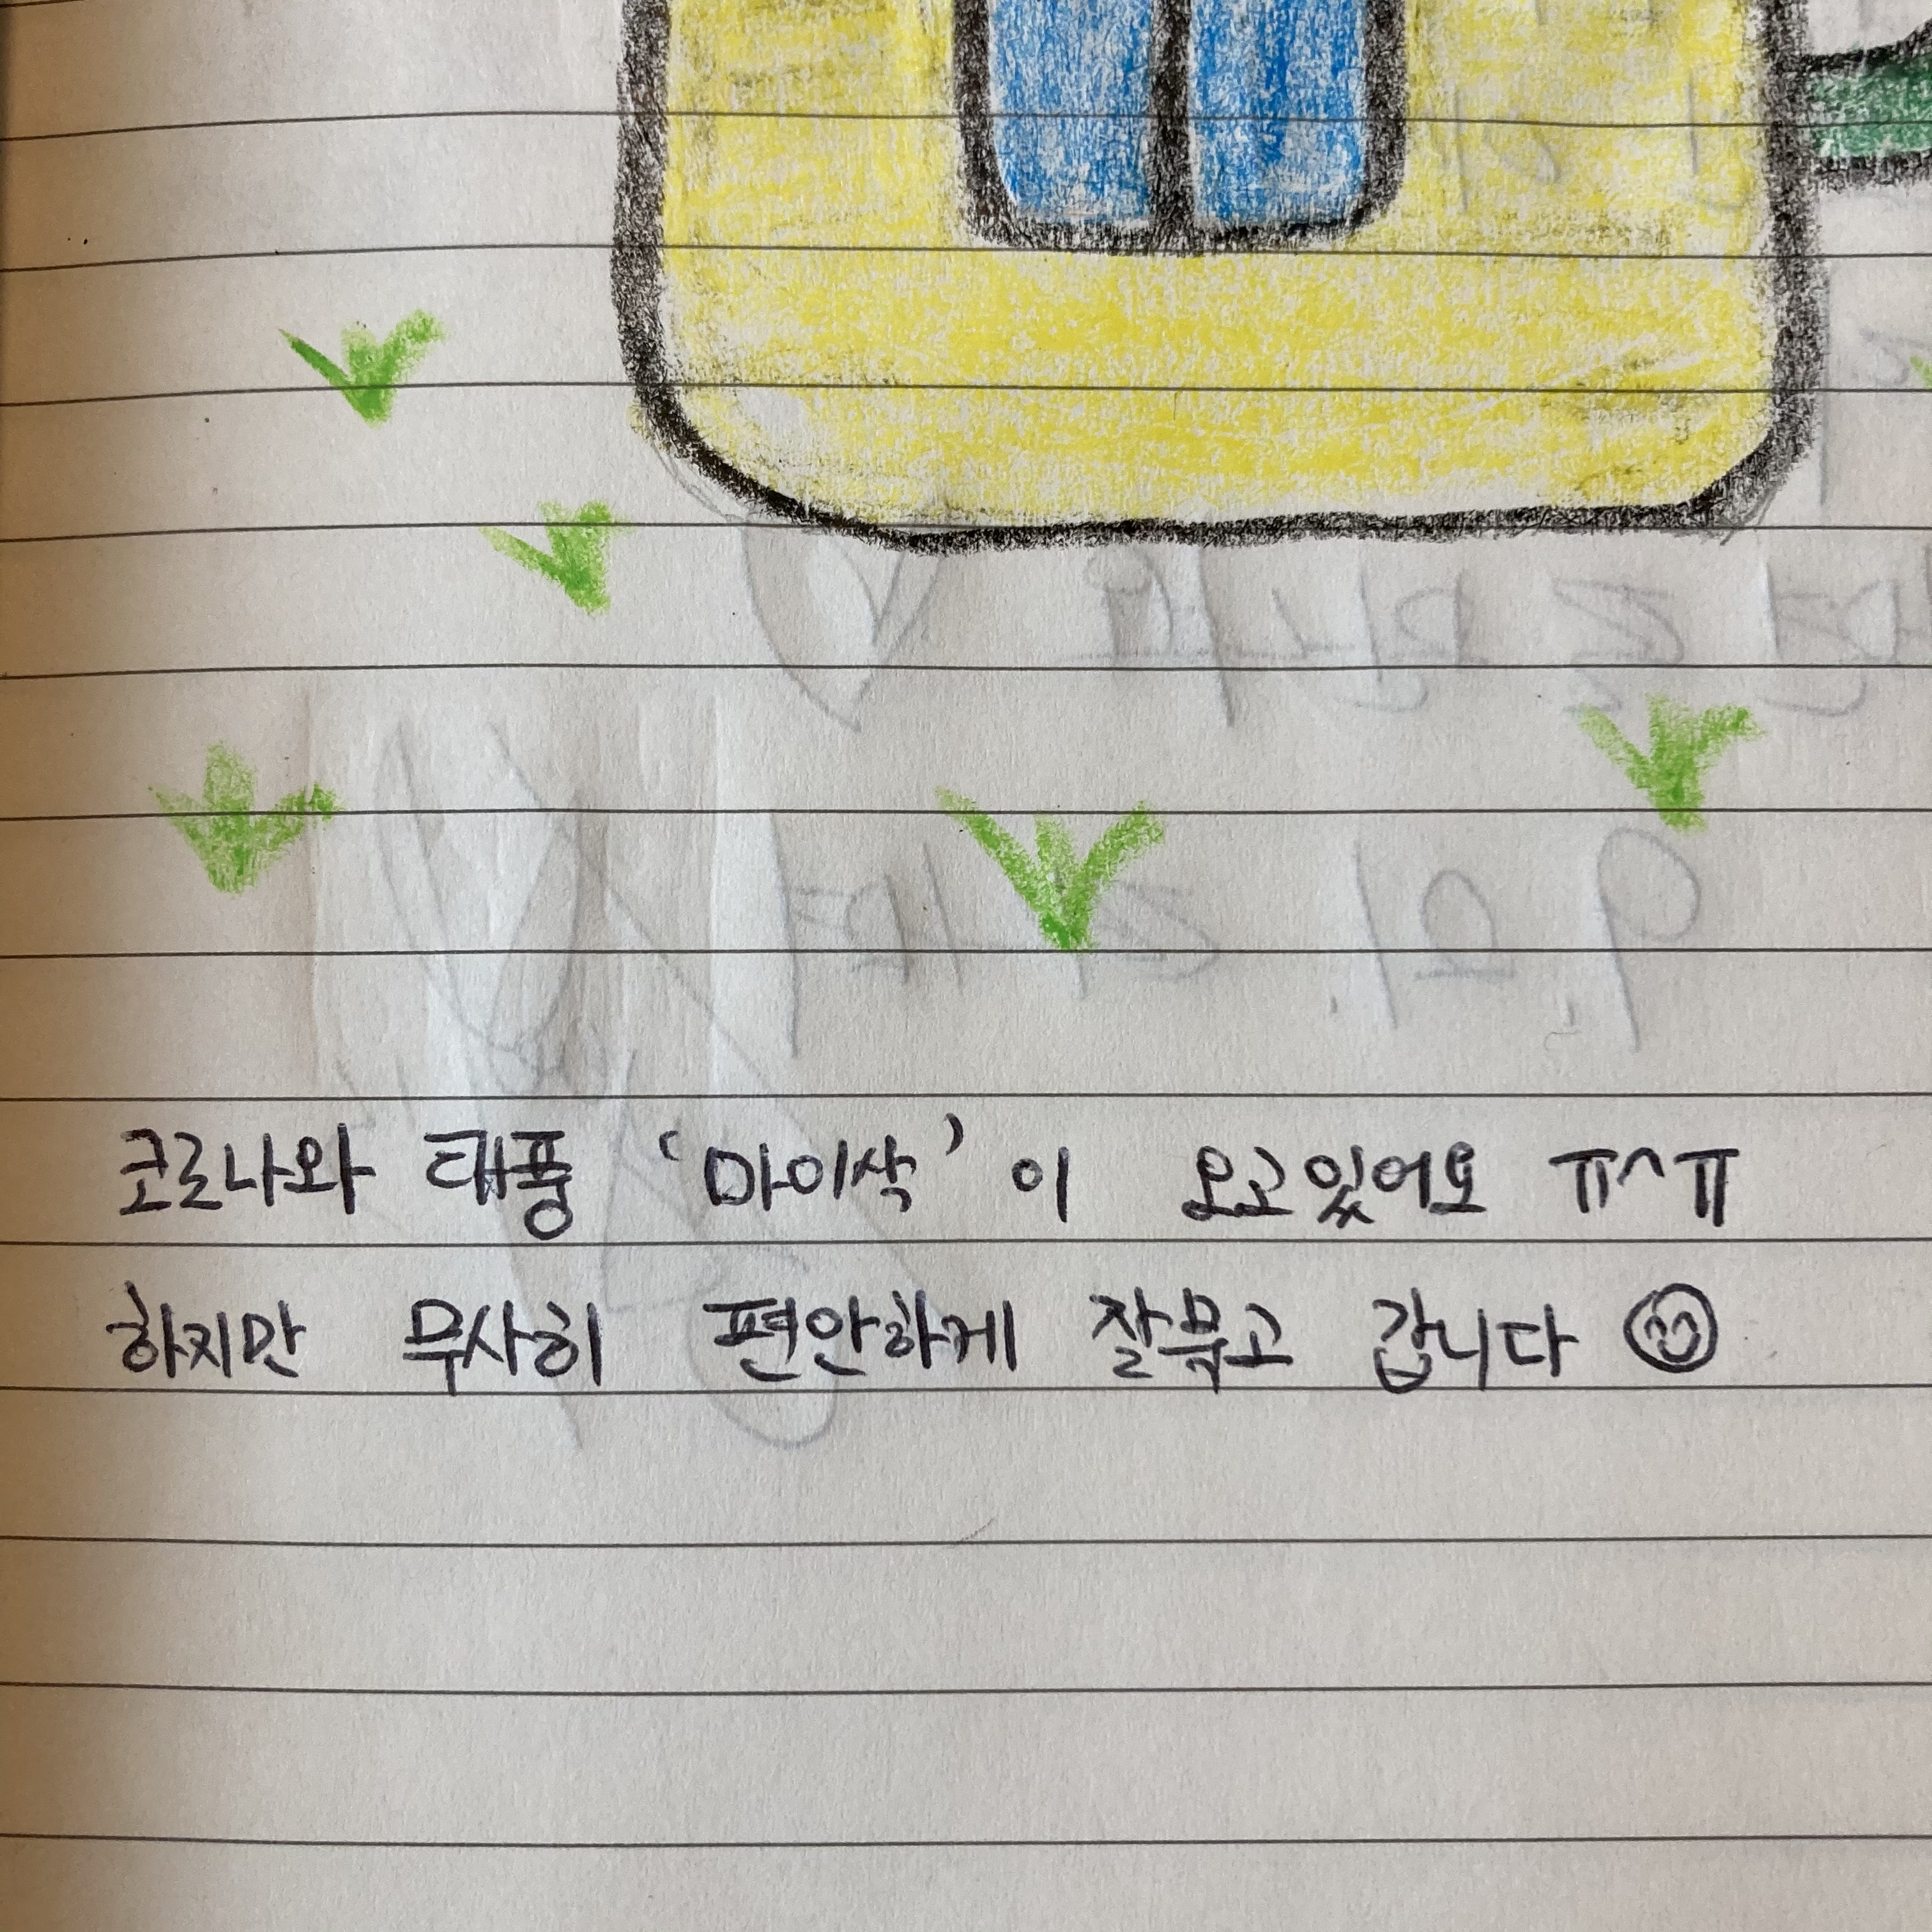 코로나와 태풍 '마이삭'이 오고있어요 ㅠ^ㅠ
하지만 무사히 편안하게 잘묵고 갑니다